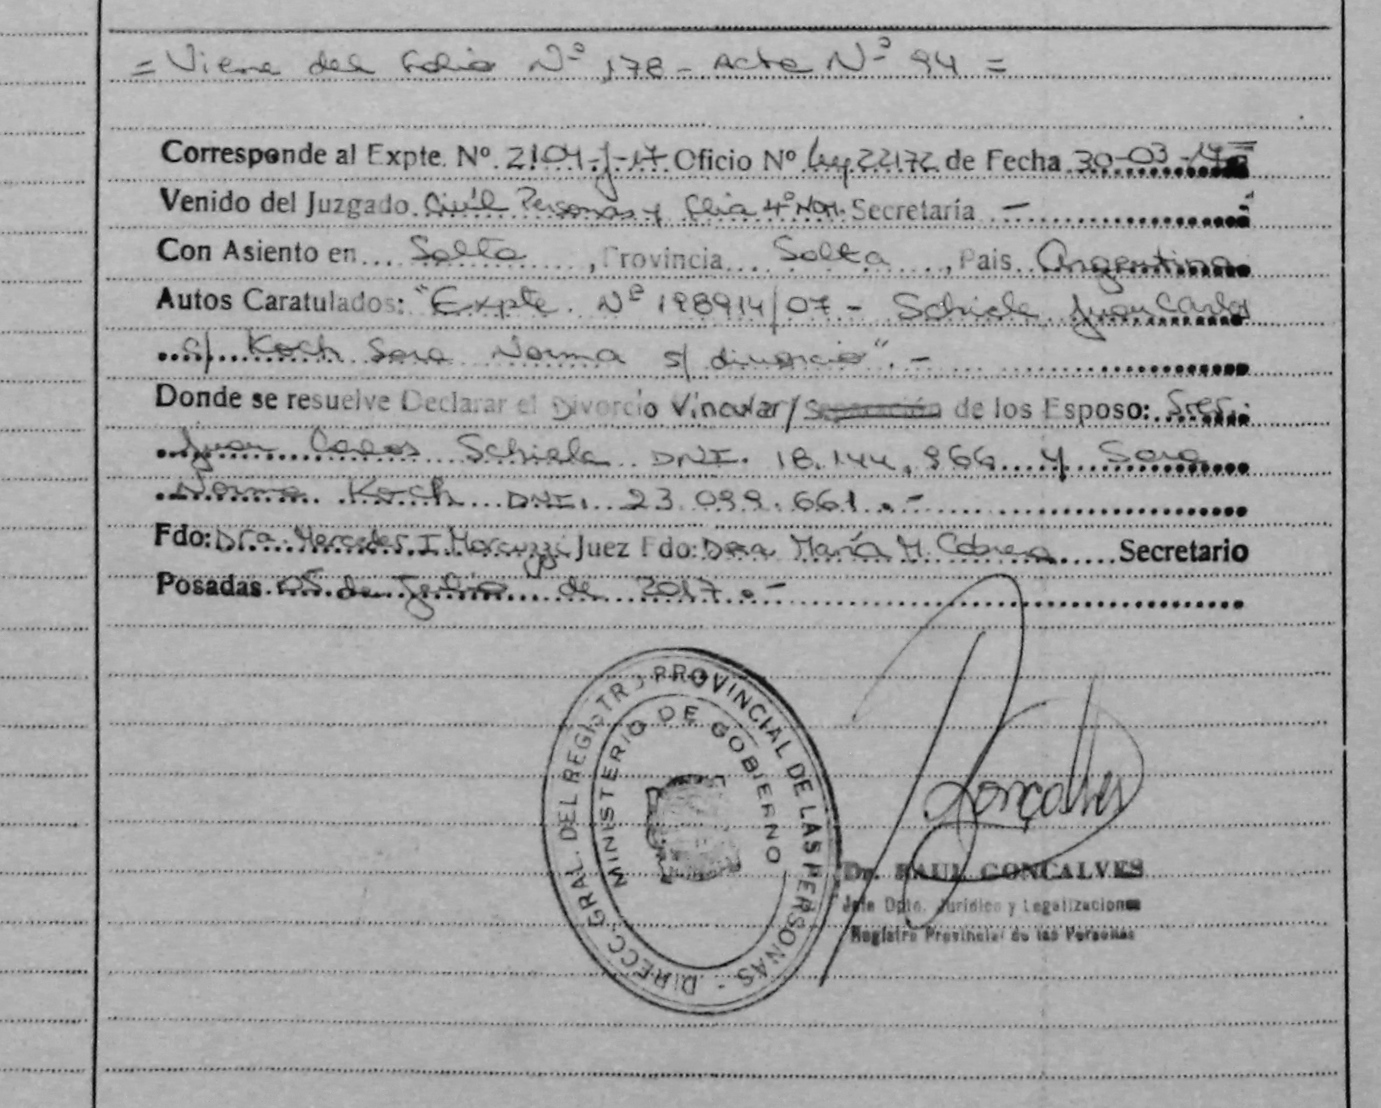 = Viene del Folio Nº 178 - Acta Nº 94 =
Corresponde al Expte. Nº. 2104-J-17 Oficio Nº Ley 22172 de Fecha 30-03-17
Venido del Juzgado Civil Personas y Flia 4º Nom. Secretaría -
Con Asiento en Salta, Provincia Salta, Pais Argentina
Autos Caratulados: "Expte. Nº 198914/07 - Schiele Juan Carlos
c/ Koch Sara Norma s/ divorcio".-
Donde se resuelve Declarar el Divorcio Vincular/Separación de los Esposo: Sres.
Juan Carlos Schiele DNI. 18.144.966 y Sara
Norma Koch DNI. 23.099.661.-
Fdo: Dra. Mercedes I. Marcuzzi Juez Fdo: Dra María M. Cabrera Secretario
Posadas 05 de Julio de 2017.-
DIRECC. GRAL. DEL REGISTRO PROVINCIAL DE LAS PERSONAS -
MINISTERIO DE GOBIERNO
Gonçalves
Dr. RAUL GONCALVES
Jefe Dpto. Jurídico y Legalizaciones
Registro Provincial de las Personas